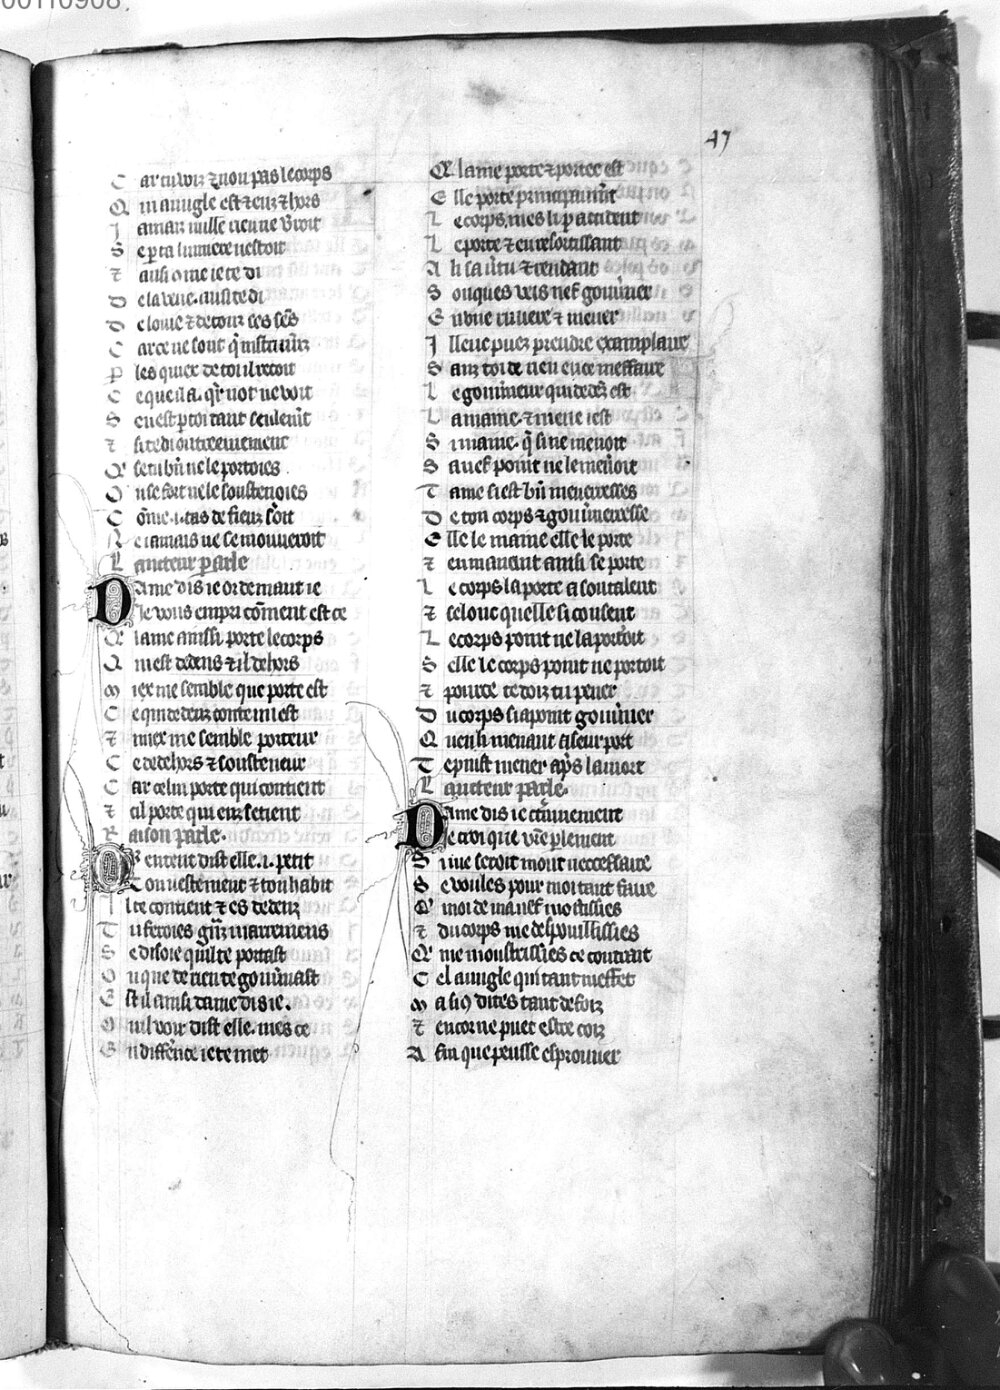 47
Car tu voiz & non pas le corps
Qui avugle est & enz & hors
Jamaiz nulle rien ne verroit
Se par ta lumiere nestoit
& ausi come ie te di
De la veue. ausi te di
De louie & de touz ses sens
Car ce ne sont qͥ instrumenz
Par les quiex de toi il recoit
Ce que il a. qr̄ riot ne voit
Se nest p̄ toi tant seulem̄t
& si te di outreement
Qͣ se tu bn̄ ne le portoies
On se fort ne le soustenoies
Com̄e .i. tas de fienz soit
Ne iamais ne se mouveroit
Lautteur parle
Dame dis ie or demant ie
Je vous empri com̄ent est ce
Qͣ lame ainssi porte le corps
Qui est dedens & il dehors
Miex me semble que porte est
Ce qui dedenz contenu est
& miex me semble porteur
Ce dehors & sousteneur
Car celui porte qui contient
& cil porte qui enz se tient
Raison parle.
Or entent dist elle .i. petit
Ton vestement & ton habit
Il te contient & es dedenz
Tu feroies gn̄z marremens
Se disoie quil te portast
Ou que de rien te gouv̄nast
Est il ainsi dame dis ie.
Nil voir dist elle. mes ce
En differ̄ce ie te met
Qͣ lame porte & portee est
Elle porte principaum̄t
Le corps, mes li par accident
Le porte & en resortissant
A li sa v̄tu & rendant
Se onques veis nef gouv̄ner
En une riviere & mener
Illeuc puez prendre exemplaire
Sanz toi de rien en ce meffaire
Le gouv̄neur qui dedenz est
La maine. & mene i est
Sͥ maine. qͥ si ne menoit
Sa nef point ne le men̄oit
Tame si est bn̄ meneresses
De ton corps & gouv̄neresse
Elle le maine elle le porte
& en menant ainsi se porte
Le corps la porte a son talent
& selonc quelle si consent
Le corps point ne la porit̄oit
Selle le corps point ne portoit
& pour ce te doiz tu pener
Du corps si a point gouv̄ner
Quen li menant a seur port
Te puist mener apͥs la mort
Lautteur parle.
Dame dis ie certainnement
Je croi que vr̄e plement
Si me seroit mout neccessaire
Se voules pour moi tant faire
Qͣ moi de ma nef mostissies
& du corps me despouillissies
Qͣ me moustrissies ce contrait
Cel avugle qui tant meffet
Ma si9 dites tant de foiz
& encor ne puet estre coiz
Afin que peusse esprouver